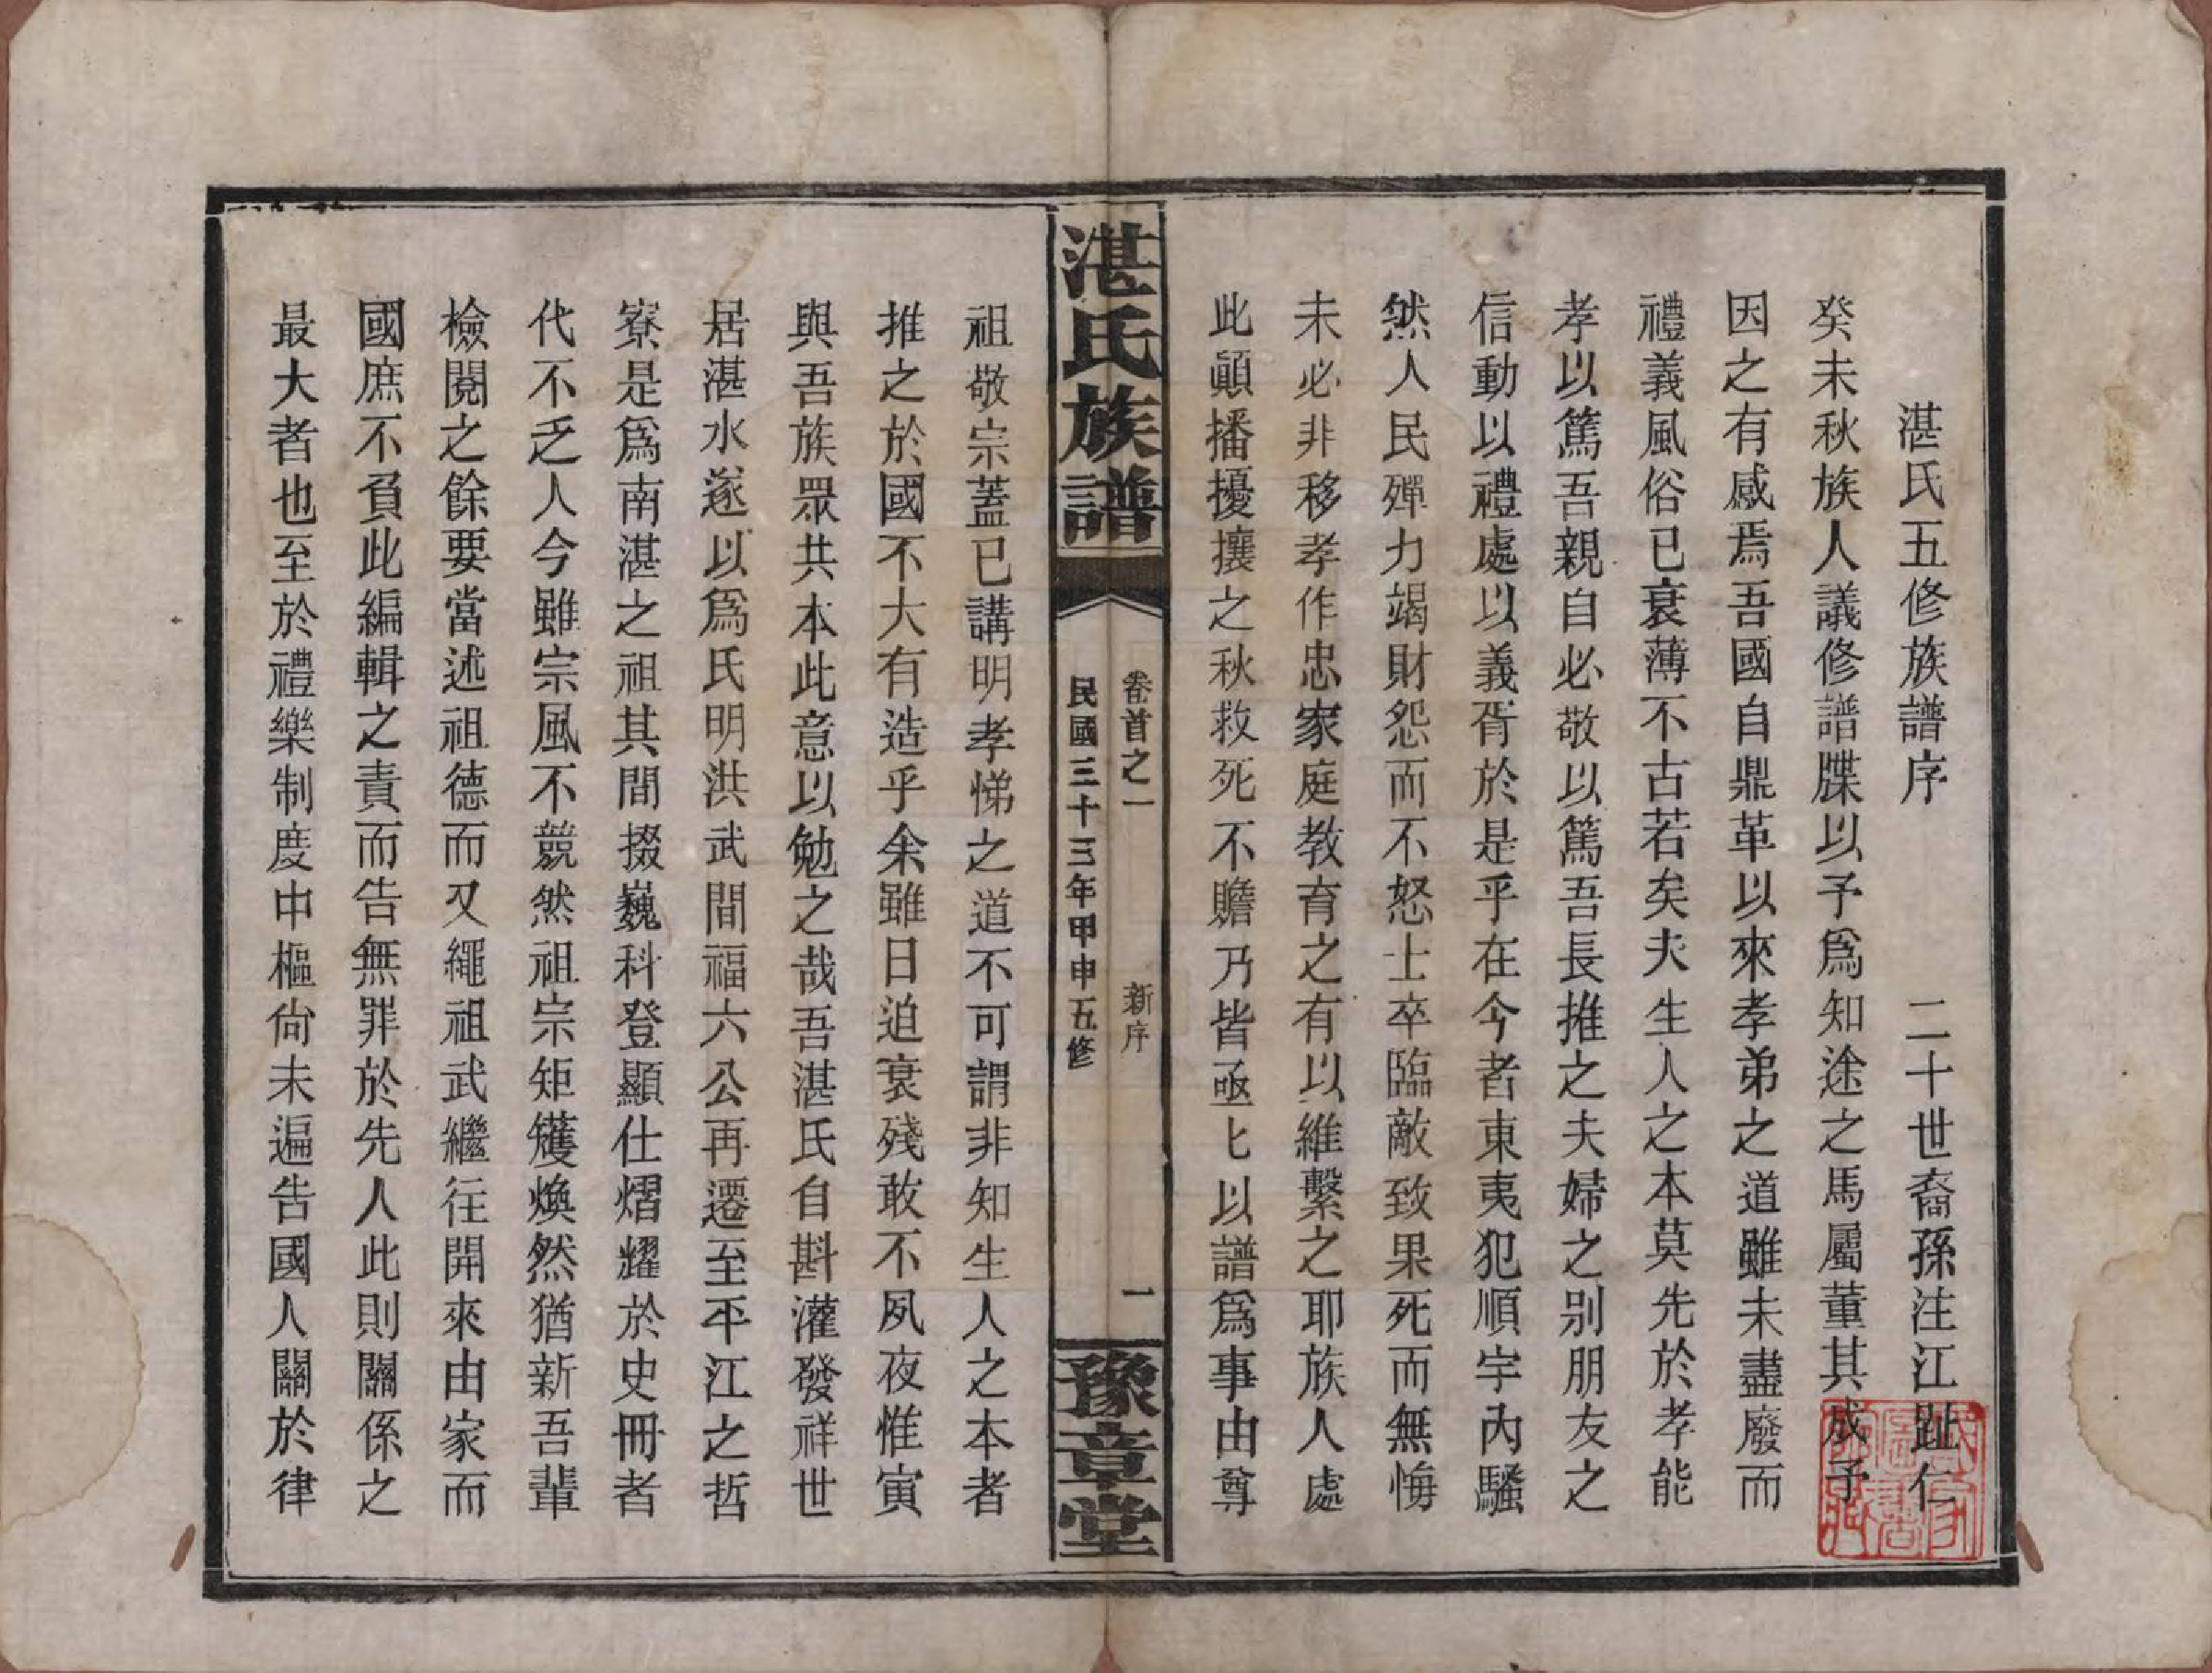 湛氏五修族譜序　二十世裔孫注江趾仁
癸未秋族人議修譜牒以予爲知途之馬屬董其成予
因之有感焉吾國自鼎革以來孝弟之道雖未盡廢而
禮義風俗已衰薄不古若矣夫生人之本莫先於孝能
孝以篤吾親自必敬以篤吾長推之夫婦之别朋友之
信動以禮處以義胥於是乎在今者東夷犯順宇內騷
然人民殫力竭財怨而不怒士卒臨敵致果死而無悔
未必非移孝作忠家庭教育之有以維繫之耶族人處
此顚播擾攘之秋救死不贍乃皆亟匕以譜爲事由尊
湛氏族譜
卷首之一　新序　一
民國三十三年甲申五修
豫章堂
祖敬宗蓋已講明孝悌之道不可謂非知生人之本者
推之於國不大有造乎余雖日迫衰殘敢不夙夜惟寅
與吾族眾共本此意以勉之哉吾湛氏自斟灌發祥世
居湛水遂以爲氏明洪武間福六公再遷至平江之哲
寮是爲南湛之祖其間掇巍科登顯仕熠耀於史冊者
代不乏人今雖宗風不競然祖宗矩矱煥然猶新吾輩
檢閱之餘要當述祖德而又繩祖武繼往開來由家而
國庶不負此編輯之責而告無罪於先人此則關係之
最大者也至於禮樂制度中樞尙未遍告國人關於律